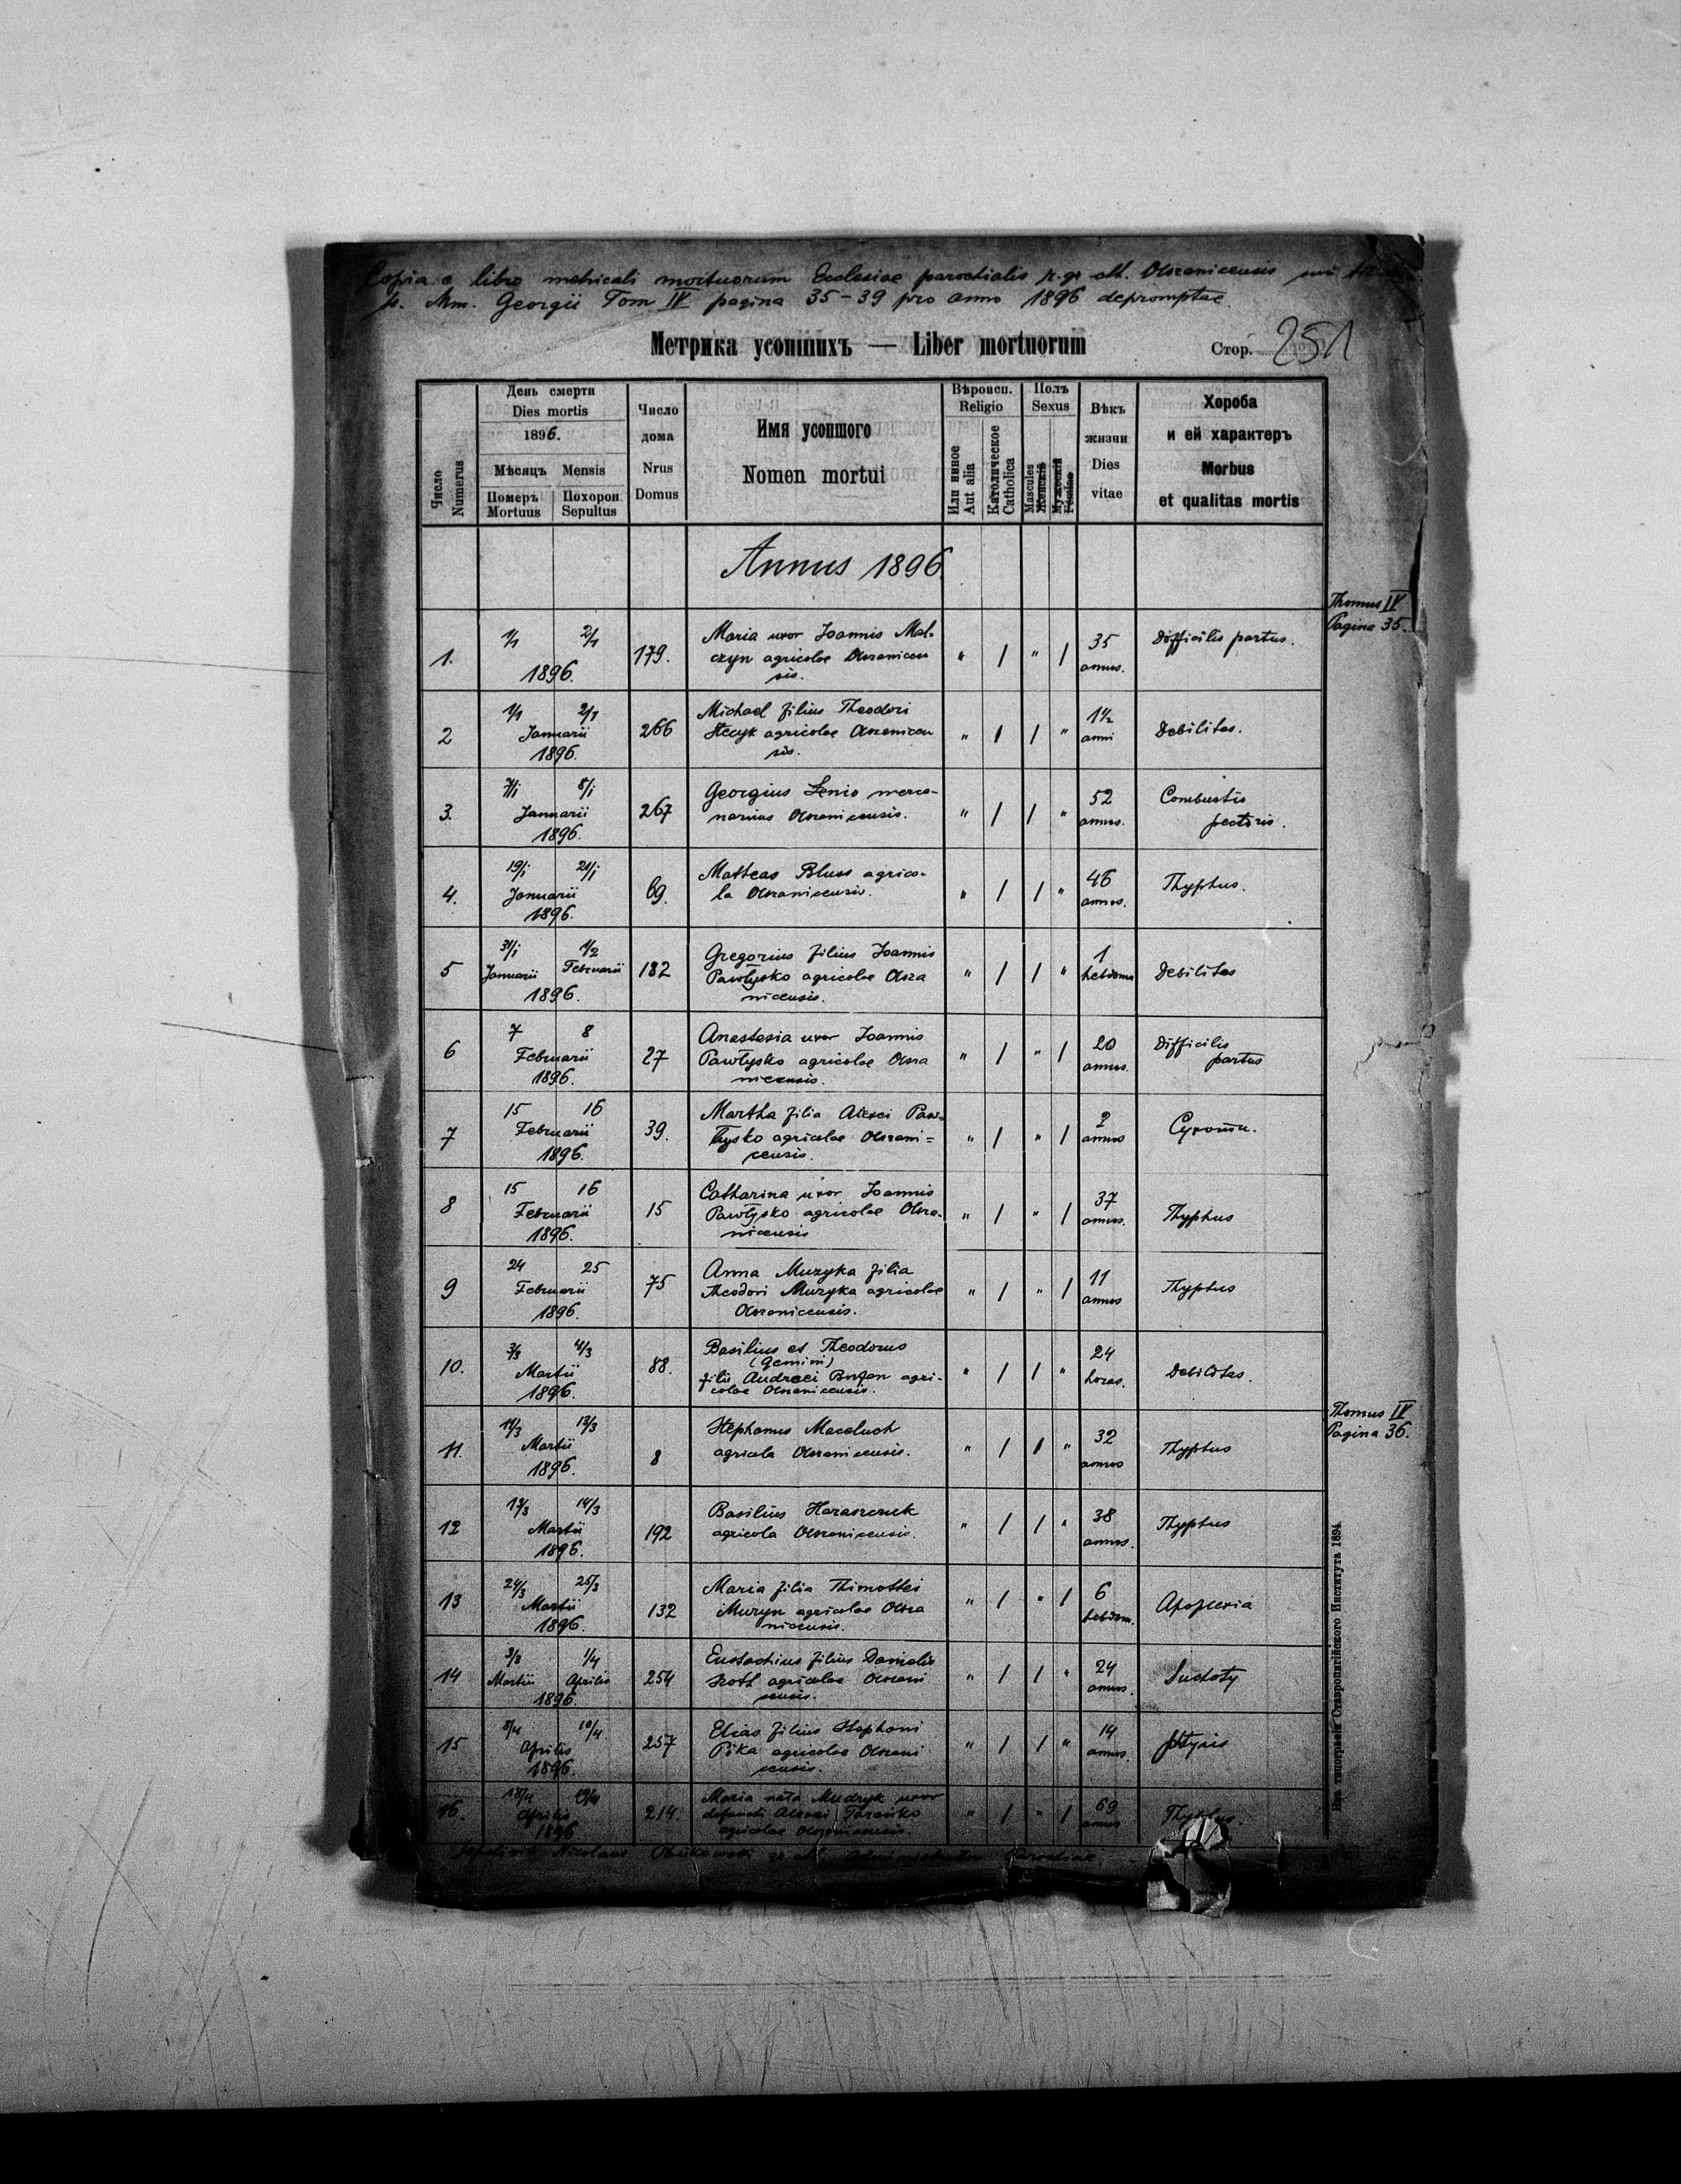 Copia e libro metricali mortuorum Ecclesiae parochialis r. gr. cth. Olszanicensis sub
S. Mm. Georgii Tom IV pagina 35-39 pro anno 1896 depromptae.
Метрика усопшихъ — Liber mortuorum
Стор. 251
Число
Numerus
День смерти
Dies mortis
1896.
Мѣсяцъ Mensis
Померъ
Mortuus
Похорон.
Sepultus
Число
дома
Nrus
Domus
Имя усопшого
Nomen mortui
Вѣроисп.
Religio
Или инное
Aut alia
Католическое
Catholica
Полъ
Sexus
Mascules
Женскій
Мужескій
Feminae
Вѣкъ
жизни
Dies
vitae
Хороба
и ей характеръ
Morbus
et qualitas mortis
Annus 1896.
Thomus IV
Pagina 35.
1. 1/1 2/1 1896. 179. Maria uxor Joannis Mal-
czyn agricolae Olszanicen
sis. " / " / 35 annos. Difficilis partus.
2 1/1 2/1 Januarii 1896. 266 Michael filius Theodori
Hecyk agricolae Olszanicen
sis. " / / " 1½ anni Debilitas.
3. 7/1 8/1 Januarii 1896. 267 Georgius Senio merce-
narius Olszanicensis. " / / " 52 annos. Combustio
pectoris.
4. 19/1 21/1 Januarii 1896. 69. Matteas Bluss agrico-
la Olszanicensis. " / / " 46 annos. Thyphus.
5 31/1 1/2 Januarii Februarii 1896. 182 Gregorius filius Joannis
Pawłysko agricolae Olsza
nicensis. " / / " 1 hebdoma Debilitas
6 7 8 Februarii 1896. 27 Anastasia uxor Joannis
Pawłysko agricolae Olsza
nicensis. " / " / 20 annos. Difficilis
partus
7 15 16 Februarii 1896. 39. Martha filia Alexei Paw-
łysko agricolae Olszani=
censis. " / " / 2 annos Сухоти.
8 15 16 Februarii 1896. 15 Catharina uxor Joannis
Pawłysko agricolae Olsza-
nicensis " / " / 37 annos. Thyphus
9 24 25 Februarii 1896. 75 Anna Muzyka filia
Theodori Muzyka agricolae
Olszanicensis. " / " / 11 annos Thyphus
10. 3/3 4/3 Martii 1896. 88. Basilius et Theodorus
(gemini)
filii Andreei agri-
colae Olszanicensis. " / / " 24 horas. Debilitas.
Thomus IV
Pagina 36.
11. 11/3 13/3 Martii 1896. 8 Stephanus Maceluch
agricola Olszanicensis. " / / " 32 annos Thyphus
12 13/3 14/3 Martii 1896. 192 Basilius Harasczuk
agricola Olszanicensis. " / / " 38 annos. Thyphus
13 24/3 25/3 Martii 1896. 132 Maria filia Thimothei
Muzyn agricolae Olsza
nicensis. " / " / 6 hebdom. Apoplexia
14 3/3 1/4 Martii Aprilis 1896. 254 Eustachius filius Danielis
agricolae Olszani
censis. " / / " 24 annos. Suchoty
15 8/4 10/4 Aprilis 1896. 257 Elias filius Stephani
Pika agricolae Olszani
censis. " / / " 14 annos.
16. 18/4 19/4 Aprilis 1896. 214. Maria nata Mudryk uxor
defuncti Alexei Tarańko
agricolae Olszanicensis. " / " / 69 annos Thyphus.
Sepelivit Nicolaus gr. cth. Administrator Parochiae.
Изъ типографіи Ставропигійского Института 1894.